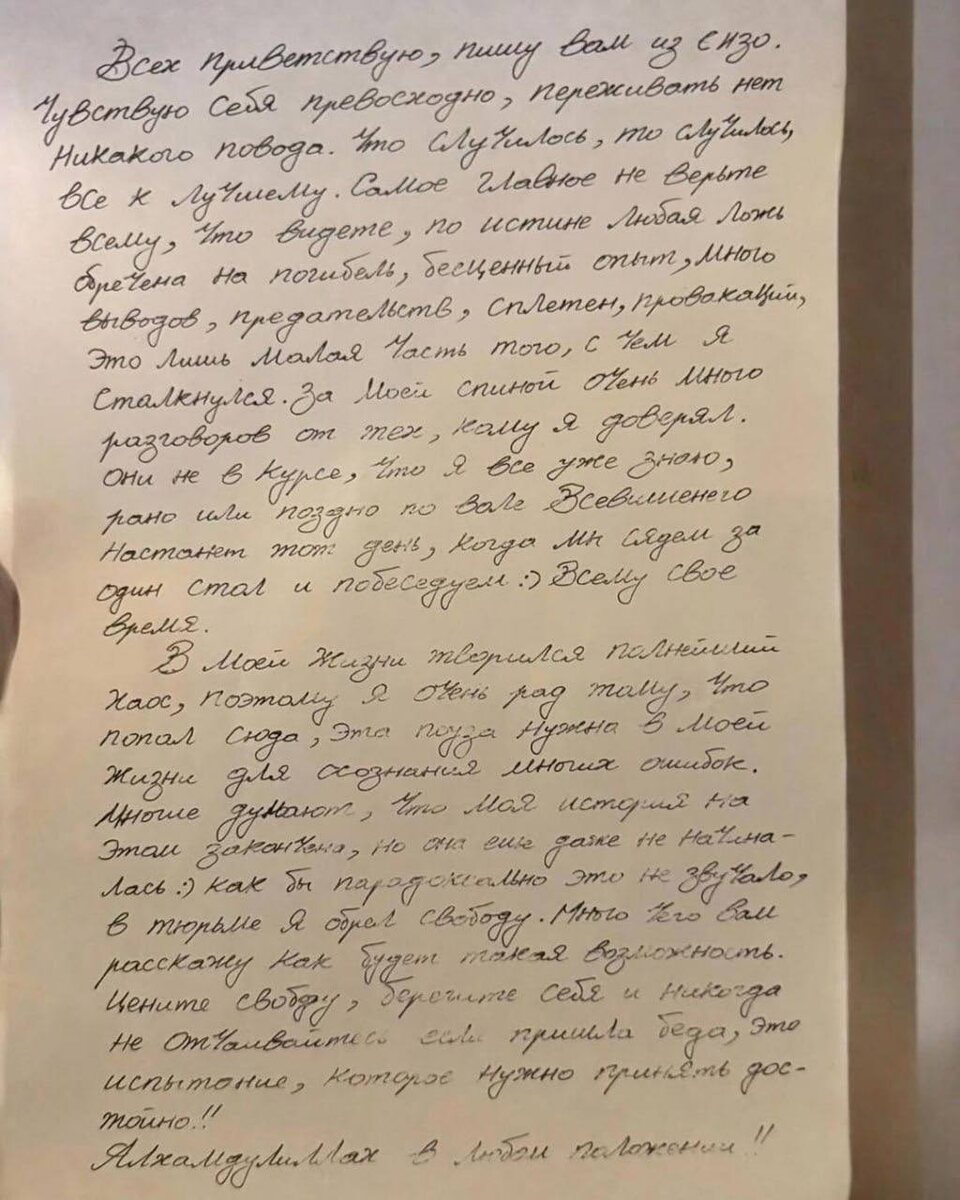 Всех приветствую, пишу вам из сизо.
Чувствую себя превосходно, переживать нет
никакого повода. Что случилось, то случилось,
все к лучшему. Самое главное не верьте
всему, что видете, по истине любая ложь
обречена на погибель, бесценный опыт, много
выводов, предательств, сплетен, провакаций,
это лишь малая часть того, с чем я
сталкнулся. За моей спиной очень много
разговоров от тех, кому я доверял.
Они не в курсе, что я все уже знаю,
рано или поздно по воле Всевышенего
настанет тот день, когда мы сядем за
один стол и побеседуем :) Всему свое
время.
В моей жизни творился полнейший
хаос, поэтому я очень рад тому, что
попал сюда, эта пауза нужна в моей
жизни для осознания многих ошибок.
Многие думают, что моя история на
этом закончена, но она еще даже не начина-
лась :) как бы парадоксально это не звучало,
в тюрьме я обрел свободу. Много чего вам
расскажу как будет такая возможность.
Цените свободу, берегите себя и никогда
не отчаивайтесь если пришла беда, это
испытание, которое нужно принять дос-
тойно!!
Алхамдулиллах в любом положении!!